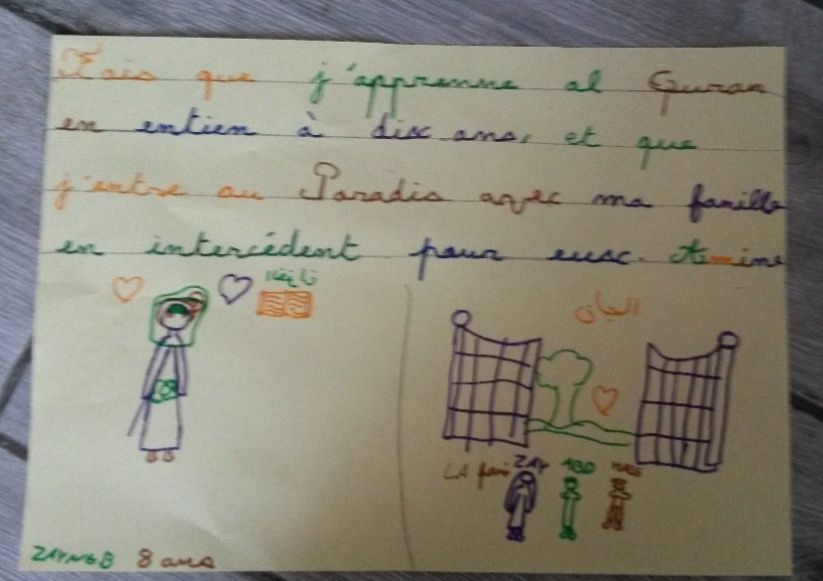 Fais que j'apprenne al Quran
en entien à dix ans, et que
j'entre au Paradis avec ma famille
en intercédent pour eux. Amine
الجان
LA fami ZAY ABD
ZAYNEB 8 ans